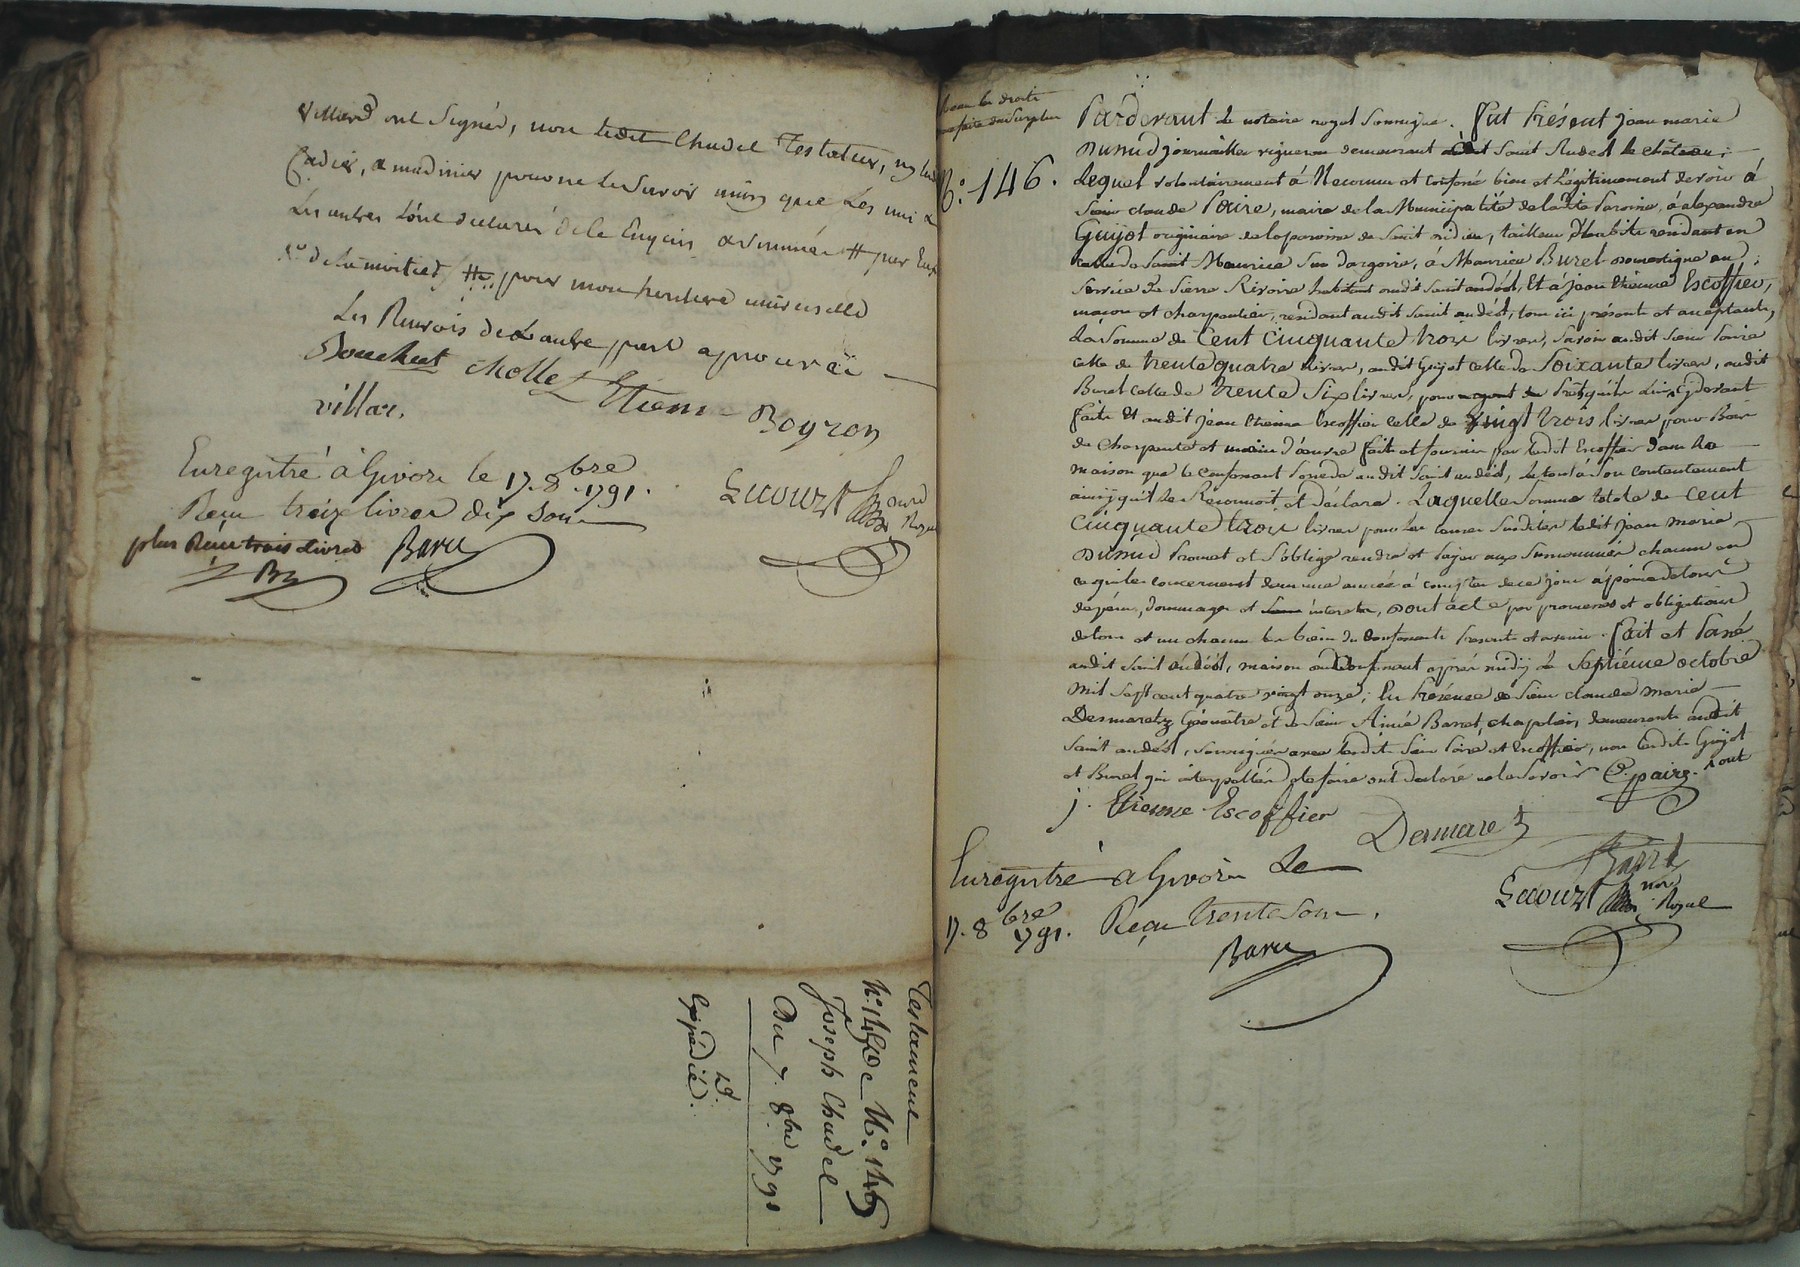 villard ont Signés, non ledit Chudel Testateur, ny les
Cadier, a madinier pour ne le Savoir
Les autres L'ont declaré de ce Enquis
pour mon heritiere universelle
Les Renvois de L'autre part aprouvéï
Bouchut Mollet Etiene Boyron
villar.
Enregistré à Givors le 17. 8.bre 1791.
Reçu treize livres dix sous
plus Reçu trois Livres
Baru
Lecourt
Royal
Testament
N.o 146
Joseph Chudel
Du 7. 8bre 1791
Expédié.
N.o 146.
Pardevant le notaire royal Soussigné. Fut Présent jean marie
Dumud journaillier vigneron demeurant Saint Andeol le château;
Lequel volontairement à Reconnu et confessé bien et Légitimement devoir à
Sieur claude Poire, maire de la Municipalité de la dte Paroisse, à alexandre
Guyot originaire de la paroisse de Saint, tailleur d'habits residant en
celle de Saint Maurice Sur dargoire, à Maurice Burel domestique au
Service de Pierre Rivoire habitant audit Saint andéol, Et à jean Etienne Escoffier,
maçon et charpentier, residant audit Saint andéol, tous ici présents et acceptants,
La Somme de Cent Cinquante trois livres, Savoir audit Sieur Poire
celle de trente quatre livres, audit Guyot celle de Soixante livres, audit
Burel celle de trente Six livres, pour argent de Prêt qu'ils Lui ont cydevant
faits Et audit jean Etienne Escoffier celle de vingt trois livres pour Bois
de Charpente et main d'œuvre fait et fourni par ledit Escoffier dans La
maison que le confessant possede audit Saint andéol, le tout à Son contentement
ainsy qu'il le Reconnoit, et déclare. Laquelle Somme totale de cent
cinquante trois livres pour les causes Susdites ledit jean marie
Dumud Promet et S'oblige rendre et payer aux Susnommés chacun en
ce qui les concernent dans une année à compter de ce jour à peine de tous
depens, dommages et interets, dont acte par promesses et obligations
de tous et un chacun les biens du Confessant Presents et avenir. Fait et Passé
audit Saint andéol, maison du Confessant après midy le Septième octobre
Mil Sept cent quatre vingt onze; En Présence de Sieur claude marie
Desmaretz Géomètre et de Sieur Aimé Barret, chapelain, demeurants audit
Saint andéol, Soussignés avec lesdits Sieur Poire et Escoffier, non lesdits Guyot
et Burel qui interpellés de le faire ont declaré ne le Savoir
C. paire.
j. Etienne Escoffier
Desmaretz
Barret
Enregistré a Givors Le
17. 8bre 1791. Reçu trente Sous.
Baru
Lecourt
nore Royal